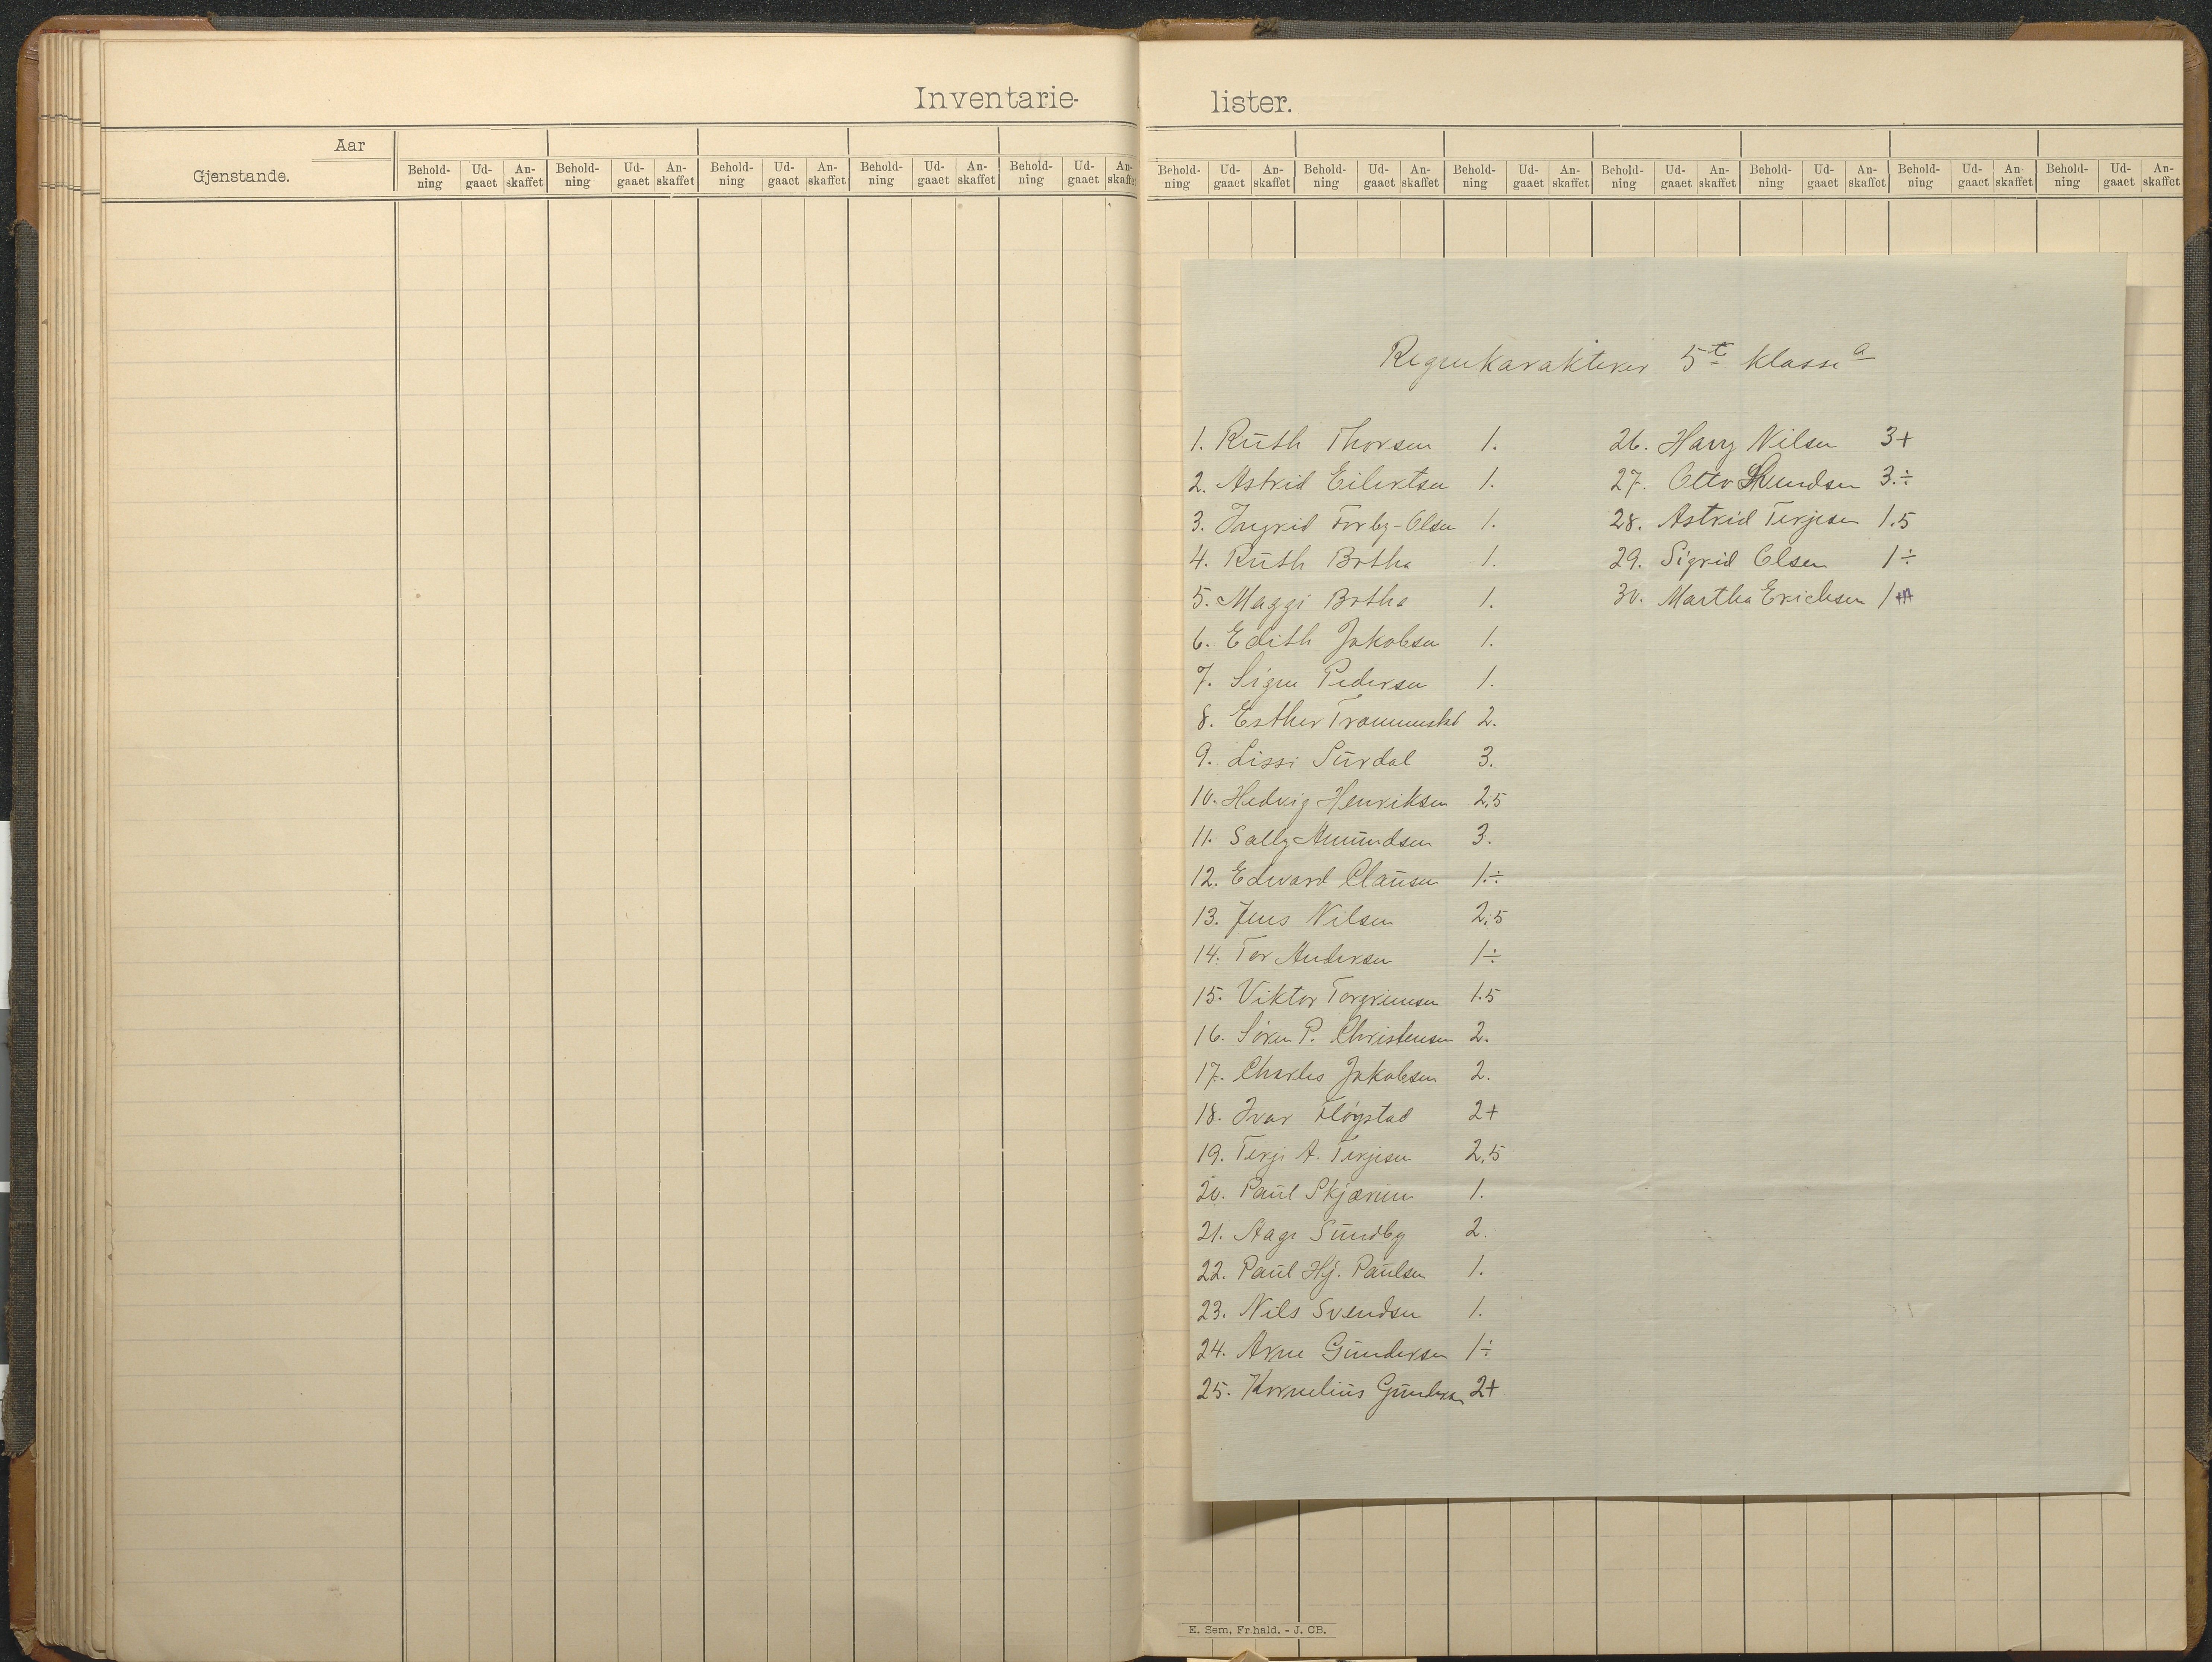 Inventarie-
lister.
Aar
Gjenstande.
Behold-ning Ud-gaaet An-skaffet Behold-ning Ud-gaaet An-skaffet Behold-ning Ud-gaaet An-skaffet Behold-ning Ud-gaaet An-skaffet Behold-ning Ud-gaaet An-skaffet
Behold-ning Ud-gaaet An-skaffet Behold-ning Ud-gaaet An-skaffet Behold-ning Ud-gaaet An-skaffet Behold-ning Ud-gaaet An-skaffet Behold-ning Ud-gaaet An-skaffet Behold-ning Ud-gaaet An-skaffet Behold-ning Ud-gaaet An-skaffet
Regnekarakterer 5te klasse a
1. Ruth Thorsen 1.
2. Astrid Eilertsen 1.
3. Ingrid Forby-Olsen 1.
4. Ruth Botha 1.
5. Maggi Botha 1.
6. Edith Jakobsen 1.
7. Signe Pedersen 1.
8. Esther 2.
9. Lissi Surdal 3.
10. Hedvig Henriksen 2,5
11. Sally Amundsen 3.
12. Edvard Clausen 1.÷
13. Jens Nilsen 2,5
14. Tor Andersen 1÷
15. Viktor Torgrimsen 1.5
16. Søren P. Christensen 2.
17. Charles Jakobsen 2.
18. Ivar Fløgstad 2+
19. Terje A. Terjesen 2,5
20. Paul Skjærum 1.
21. Aage Sundby 2.
22. Paul Hj. Paulsen 1.
23. Nils Svendsen 1.
24. Arne Gundersen 1÷
25. Kornelius Gundersen 2+
26. Harry Nilsen 3+
27. Otto 3.÷
28. Astrid Terjesen 1.5
29. Sigrid Olsen 1÷
30. Martha Erichsen 1
E. Sem, Fr.hald. - J. CB.